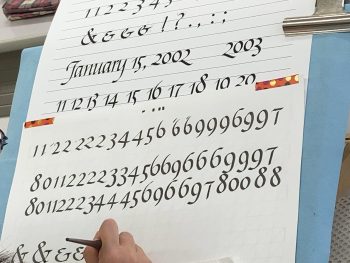 1 1 2 2 3 4 4 5
& & & & ! ? . , : ;
January 15, 2002 2003
11 12 13 14 15 16 17 18 19 20
11 22 22 23 4 4 5 6 6 6 9 9 9 6 9 9 7
8011222334566966699 97
80112223444569669780088
& & & &